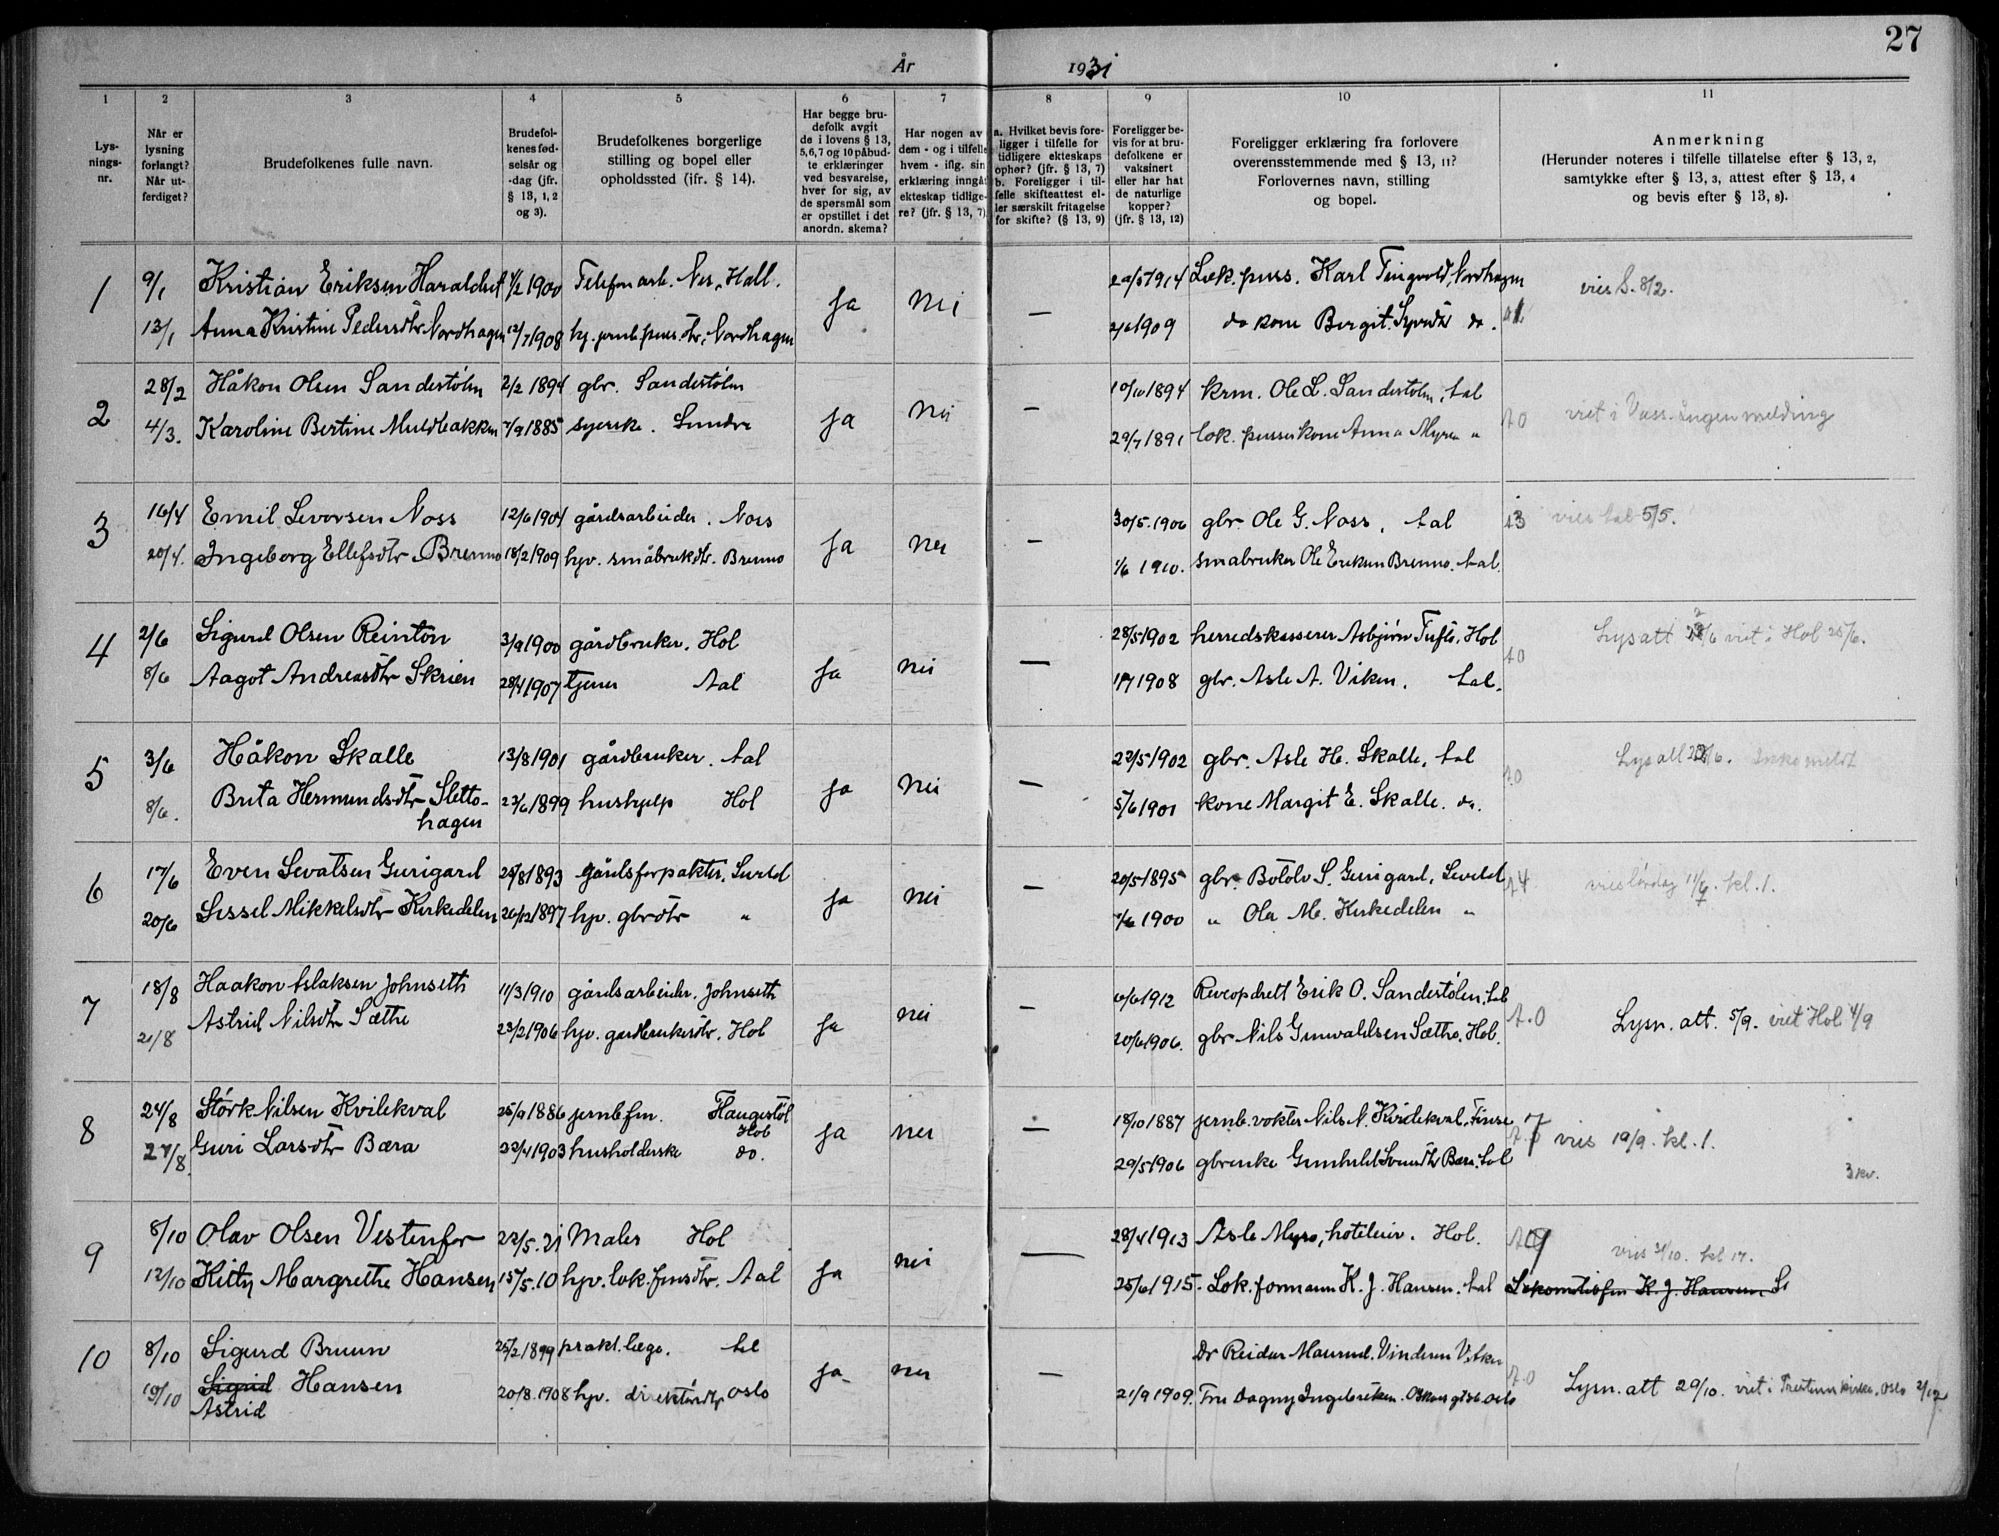 27
År 1931
1 2 3 4 5 6 7 8 9 10 11
Lys-
nings-
nr.
Når er
lysning
forlangt?
Når ut-
ferdiget?
Brudefolkenes fulle navn.
Brudefol-
kenes fød-
selsår og
-dag (jfr.
§ 13, 1, 2
og 3).
Brudefolkenes borgerlige
stilling og bopel eller
opholdssted (ifr. § 14).
Har begge bru-
defolk avgit
de i lovens § 13,
5,6,7 og 10 påbud-
te erklæringer
ved besvarelse,
hver for sig, av
de spørsmål som
er opstillet i det
anordn. skema?
Har nogen av
dem - og i tilfelle
hvem - iflg. sin
erklæring inngåt
ekteskap tidlige-
re? (jfr. § 13, 7)
a. Hvilket bevis fore-
ligger i tilfelle for
tidligere ekteskaps
ophør? (jfr. § 13, 7)
b. Foreligger i til-
felle skifteattest el-
ler særskilt fritagelse
for skifte? (§ 13, 9)
Foreligger be-
vis for at bru-
defolkene er
vaksinert
eller har hat
de naturlige
kopper?
(jfr. § 13, 12)
Foreligger erklæring fra forlovere
overensstemmende med § 13, 11?
Forlovernes navn, stilling
og bopel.
Anmerkning
(Herunder noteres i tilfelle tillatelse efter § 13, 2,
samtykke efter § 13, 3, attest efter § 13, 4
og bevis efter § 13, 8).
1 9/1 Kristian Eriksen Haraldset 4/2 1900 Telefonarb. Nes, Hall. ja nei — 1914 Lok. puss. Karl Tingvold, Nordhagen vies S. 8/2.
13/1 Anna Kristine Pedersdtr Nordhagen 12/7 1908 hj. jernb. puss. dtr, Nordhagen 1909 do kone Bergit do.
2 28/2 Håkon Olsen Sandestølen 2/2 1894 gbr. Sandestølen ja nei — 10/10 1894 krm. Ole L. Sandestølen, Aal A0 viet i Voss. Ingen melding
4/3. Karoline Bertine Muldbakken 7/9 1885 syerske. Sundre 29/7 1891 lok. pusserkone Anna Myren "
3 16/4 Emil Levorsen Noss 12/6 1904 gårdsarbeider. Noss ja nei — 30/5. 1906 gbr. Ole G. Noss, Aal 13 vies Aal 5/5.
20/4. Ingeborg Ellefsdtr. Brenno 18/2 1909 hjv. småbrukdtr. Brenno 1/6 1910. småbruker Ole Eriksen Brenno. Aal.
4 2/6 Sigurd Olsen Reinton 3/9 1900 gårdbruker. Hol ja nei — 28/5 1902 herredskasserer Asbjørn Tufte, Hol A0 Lysatt /6 viet i Hol 25/6.
8/6 Aagot Andreasdtr Skrien 28/4 1907 tjener Aal 1908 gbr. Asle A. Viken. Aal.
5 3/6 Håkon Skalle 13/8 1901 gårdbruker. Aal ja nei — 22/5 1902 gbr. Asle H. Skalle, Aal A0 Lysatt /6. Ikke meldt
8/6. Brita Hermundsdtr Sletto-
hagen 23/6 1899 hushjelp Hol 5/6 1901 kone Margit E. Skalle. do.
6 17/6 Even Sevatsen Gurigard 25/8 1893 gårdsforpakter, Leveld ja nei — 20/5 1895 gbr. Botolv S. Gurigard, Leveld A4. vies lørdag 11/7. kl. 1.
20/6 Sissel Mikkelsdtr Kirkedelen 20/12 1897 hjv. gbrdtr " 1/6 1900 " Ola M. Kirkedelen "
7 18/8 Haakon Aslaksen Johnseth 11/3 1910 gårdsarbeider. Johnseth ja nei — 6/6 1912 Reveopdrett Erik O. Sandestølen, Aal A.0 Lysn. att. 5/9. viet Hol 4/9
21/8 Astrid Nilsdtr Sæthe 23/2 1906 hjv. gardbrukerdtr. Hol 20/6 1906. gbr Nils Gunvaldsen Sæthe. Hol.
8 24/8 Størk Nilsen Kvilekval 25/9 1886 jernb.fm. Haugestøl
Hol ja nei — 18/10 1887 jernb. vokter Nils N. Kvilekval, Finse 7 vies 19/9. kl. 1.
27/8. Guri Larsdtr Bæra 22/4 1903 husholderske do. 29/5 1906 gbrenke Gunhild Bæra. Aal 3 kv.
9 8/10 Olav Olsen Vestenfor 22/5. 21 Maler Hol ja nei — 28/4 1913 Asle Myro, hoteleier. Hol. 9 vies 31/10. kl 17.
12/10 Kitty Margrethe Hansen 15/5. 10 hjv. lok. fmsdtr, Aal 25/6 1915. Lok. formann K. J. Hansen. Aal Lokomotivfm K. J. Hansen.
10 8/10 Sigurd Bruun 25/2 1899 prakt. læge. Aal ja nei — Dr Reidar Maurud. Vinderen V. Aker A.0 Lysn. att 29/10. viet i kirke, Oslo 2/12
19/10 Sigrid Hansen
Astrid 20/8. 1908 hjv. direktørdtr Oslo 21/9 1909. Fru Dagny Ingebretsen. Oslo